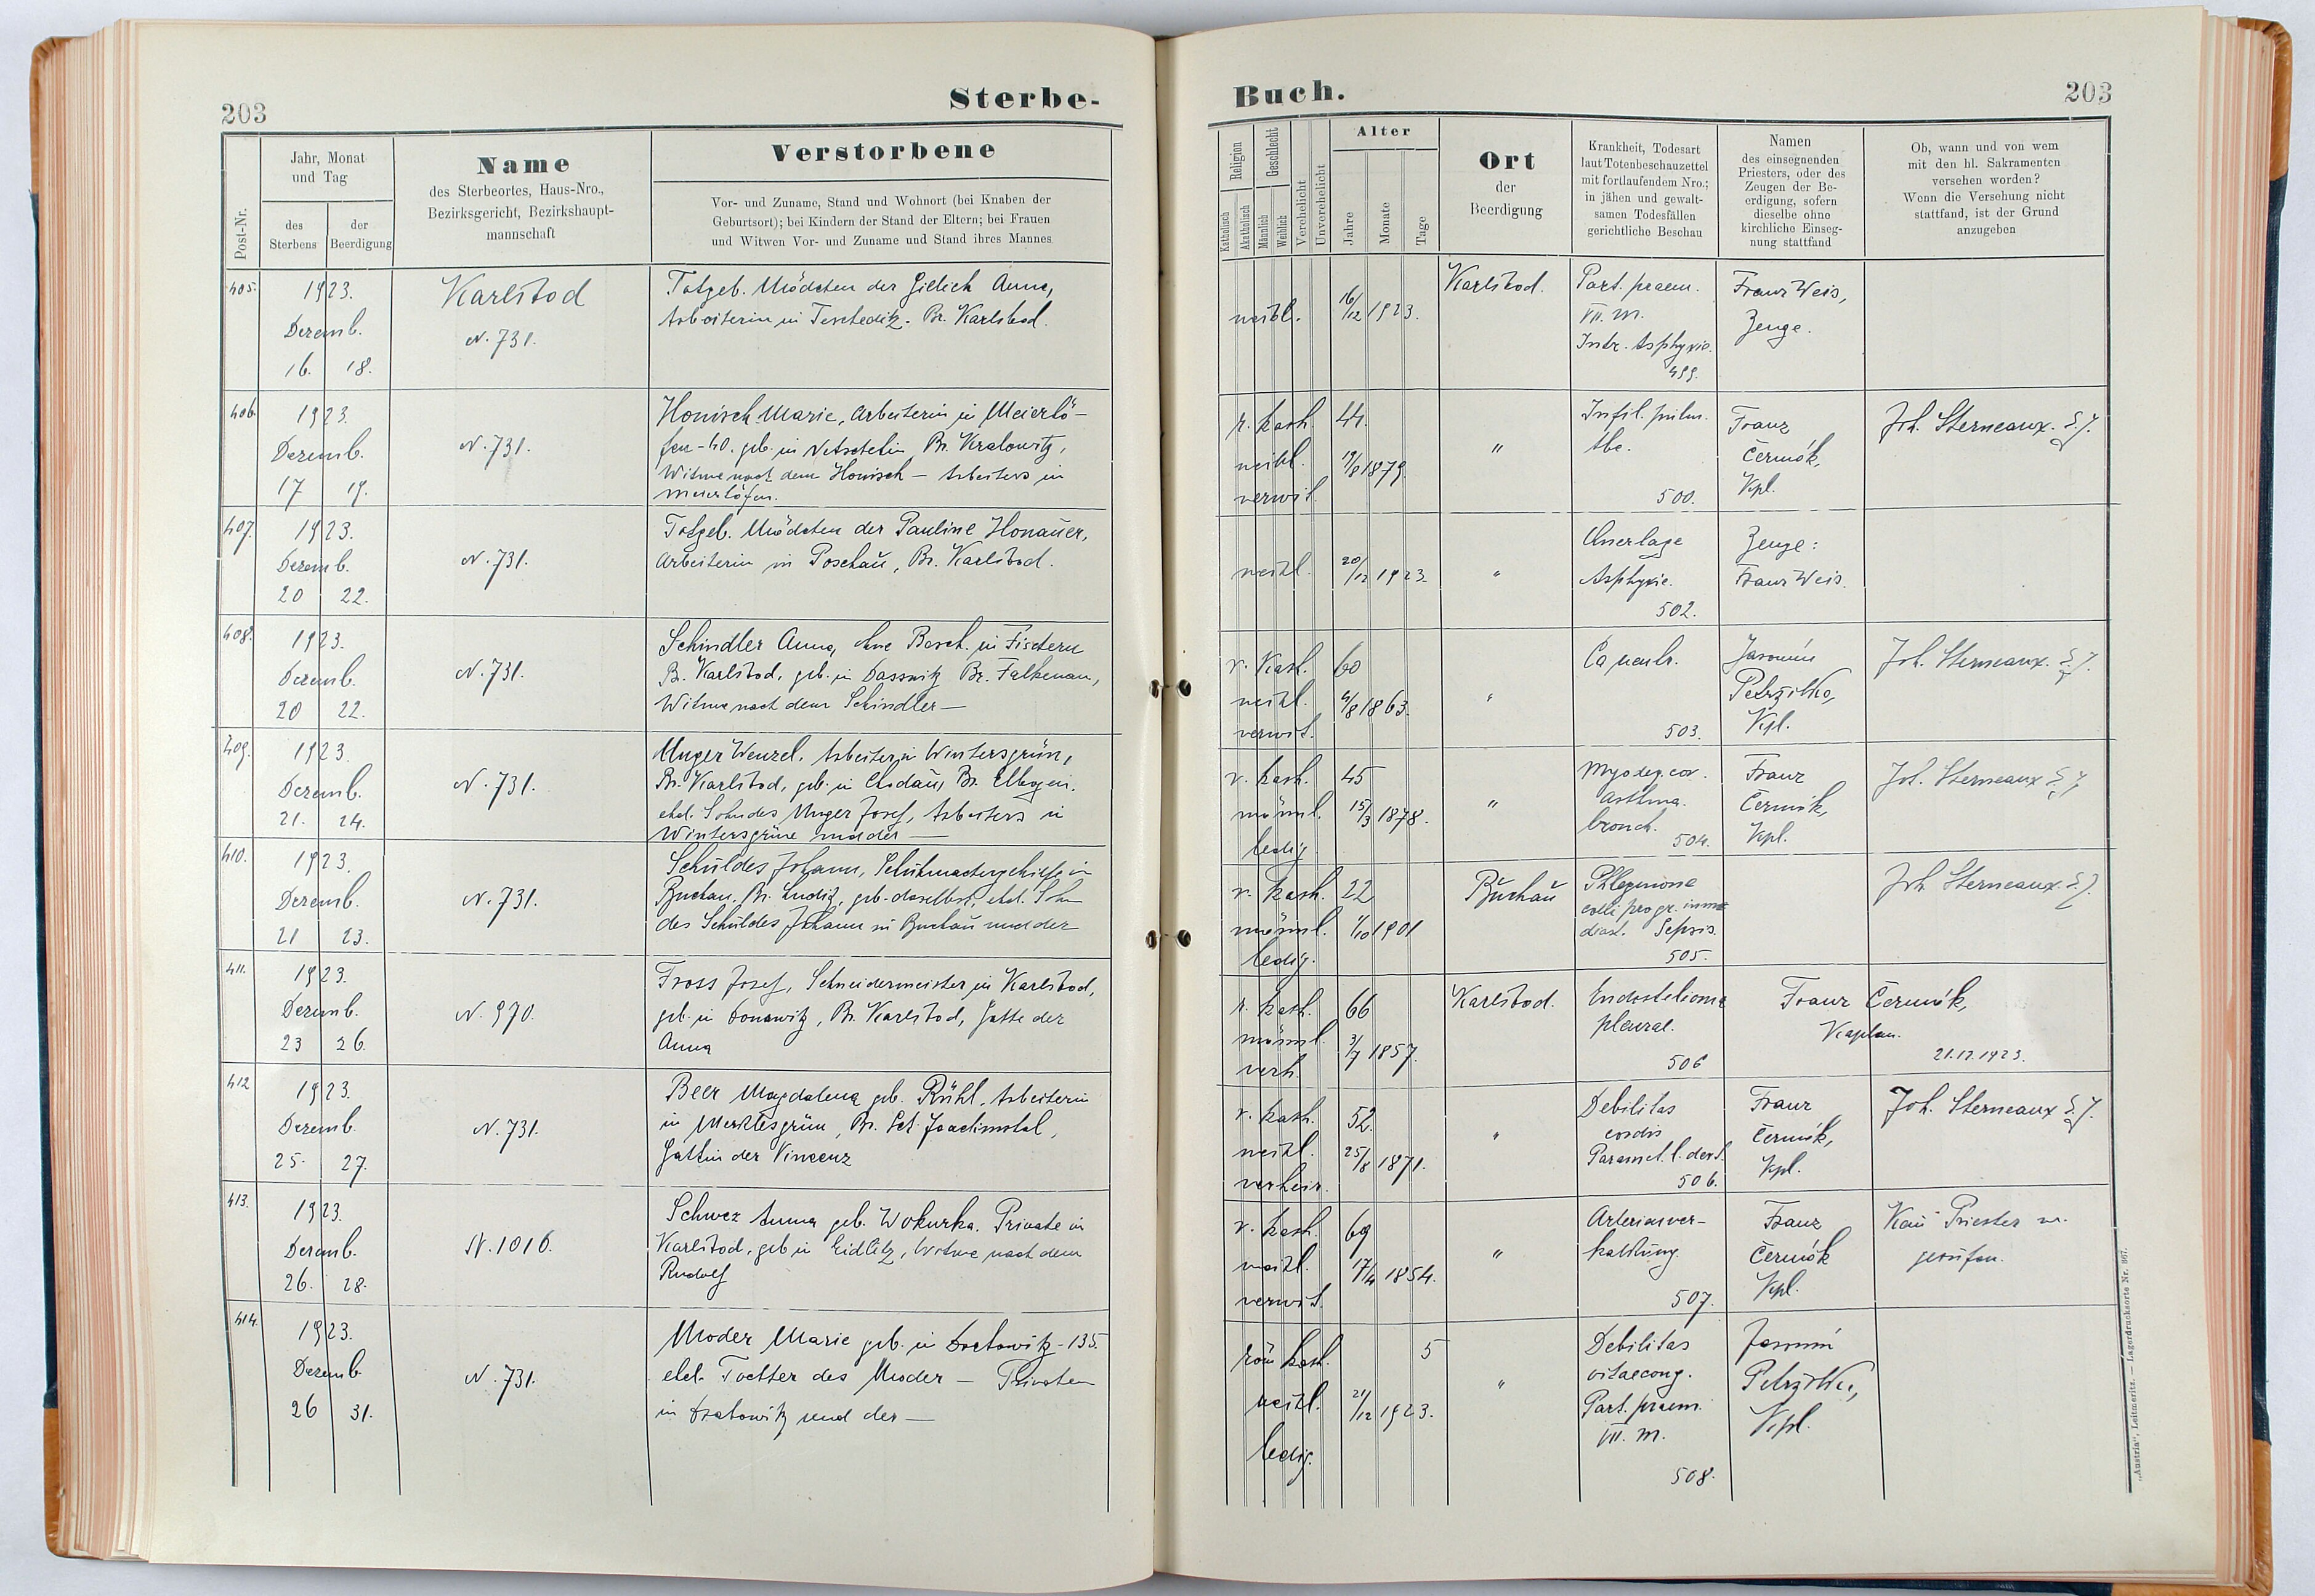 203
Sterbe-
Post-Nr.
Jahr, Monat
und Tag
des
Sterbens
der
Beerdigung
Name
des Sterbeortes, Haus-Nro.,
Bezirksgericht, Bezirkshaupt-
mannschaft
Verstorbene
Vor- und Zuname, Stand und Wohnort (bei Knaben der
Geburtsort); bei Kindern der Stand der Eltern; bei Frauen
und Witwen Vor- und Zuname und Stand ihres Mannes
405.
1923.
Dezemb.
16. 18.
Karlsbad
N. 731.
Totgeb. Mädchen der Anna,
Arbeiterin in Bz. Karlsbad.
406.
1923.
Dezemb.
17 19.
N. 731.
Honisch Marie, Arbeiterin in Meierhö-
fen-40. geb. in Bz. Kralowitz,
Witwe nach dem Honisch – Arbeiters in
Meierhöfen.
407.
1923.
Dezemb.
20 22.
N. 731.
Totgeb. Mädchen der Pauline Honauer,
Arbeiterin in Poschau, Bz. Karlsbad.
408.
1923.
Dezemb.
20 22.
N. 731.
Schindler Anna, ohne Besch. in Fischern
B. Karlsbad, geb. in Dasswitz Bz. Falkenau,
Witwe nach dem Schindler –
409.
1923.
Dezemb.
21. 24.
N. 731.
Unger Wenzel, Arbeiter in Wintersgrün,
Bz. Karlsbad, geb. in Chodau, Bz. Elbogen,
ehel. Sohn des Unger Josef, Arbeiters in
Wintersgrün und der –
410.
1923.
Dezemb.
21 23.
N. 731.
Schüldes Johann, Schuhmachergehilfe in
Buchau, Bz. Luditz, geb. daselbst, ehel. Sohn
des Schüldes Johann in Buchau und der
411.
1923.
Dezemb.
23 26.
N. 970.
Fross Josef, Schneidermeister in Karlsbad,
geb. in Donawitz, Bz. Karlsbad, Gatte der
Anna
412
1923.
Dezemb.
25. 27.
N. 731.
Beer Magdalena geb. Rühl, Arbeiterin
in Merklesgrün, Bz. Sct. Joachimstal,
Gattin der Vincenz
413.
1923.
Dezemb.
26. 28.
N. 1016.
Schwez Anna geb. Wokurka. Private in
Karlsbad, geb. in Eidlitz, Witwe nach dem
Rudolf
414.
1923.
Dezemb
26 31.
N. 731.
Moder Marie geb. in -135.
ehel. Tochter des Moder – Privaten
in und der –
Buch.
203
Religion
Katholisch
Akatholisch
Geschlecht
Männlich
Weiblich
Verehelicht
Unverehelicht
Alter
Jahre
Monate
Tage
Ort
der
Beerdigung
Krankheit, Todesart
laut Totenbeschauzettel
mit fortlaufendem Nro.;
in jähen und gewalt-
samen Todesfällen
gerichtliche Beschau
Namen
des einsegnenden
Priesters, oder des
Zeugen der Be-
erdigung, sofern
dieselbe ohne
kirchliche Einseg-
nung stattfand
Ob, wann und von wem
mit den hl. Sakramenten
versehen worden?
Wenn die Versehung nicht
stattfand, ist der Grund
anzugeben
weibl.
16/12 1923.
Karlsbad.
Part. praem.
VII. M.
Intr. Asphyxie.
499.
Franz Weis,
Zeuge.
r. kath.
weibl.
verwit.
44.
19/8 1879.
"
Infil. pulm.
tbc.
500.
Franz
Čermák,
Kpl.
Joh. Sterneaux. S. J.
weibl.
20/12 1923.
"
Querlage
Asphyxie.
502.
Zeuge:
Franz Weis.
r. Kath.
weibl.
verwit.
60
4/8 1863.
"
Ca
503.
Jaromír
Petrzilka,
Kpl.
Joh. Sterneaux. S. J.
r. kath.
männl.
ledig
45
15/3 1878.
"
Myodeg. cor.
Asthma.
bronch.
504.
Franz
Čermák,
Kpl.
Joh. Sterneaux S. J.
r. kath.
männl.
ledig.
22
1/10 1901
Buchau
Phlegmone
colli progr. in me
diast. Sepsis.
505.
Joh. Sterneaux. S. J.
r. kath.
männl.
verh.
66
3/7 1857.
Karlsbad.
Endotelioma
pleurae.
506
Franz Čermák,
Kaplan.
21.12.1923.
r. kath.
weibl.
verheir.
52.
25/8 1871.
"
Debilitas
cordis
Paramet. l. dext.
506.
Franz
Čermák,
Kpl.
Joh. Sterneaux S. J.
r. kath.
weibl.
verwit.
69
17/4 1854.
"
Arterienver-
kalkung.
507.
Franz
Čermák
Kpl.
Kein Priester w.
gerufen.
röm kath.
weibl.
ledig.
5
21/12 1923.
"
Debilitas
vitae cong.
Part. praem.
VII. M.
508.
Jaromír
Petrzilka,
Kpl.
„Austria", Leitmeritz. — Lagerdrucksorte Nr. 867.